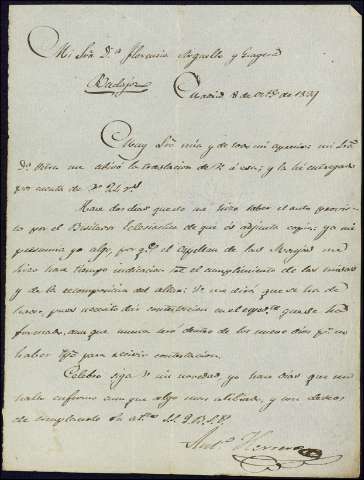 Mi Sra Da Florencia Arguello y
Badajoz
Madrid 8 de Octe de 1839
Muy Sra mia y de toda mi aprecio: mi Sra
Da Petra me avisó la traslacion de V. á esa; y la hé entregado
por cuenta de V. 24 rs
Hace dos dias que se me hizo saber el auto proveido
por el Eclesiastico de que és adjunta copia; yá me
presumia yo algo, por qe el Capellan de las Monjas me
hizo hace tiempo indicacion del cumplimiento de las misas
y de la recomposicion del altar; V. me dirá que se ha de
hacer, pues necesito dar contestacion en el espedte que se há
formado, aunque nunca será dentro de los nueve dias pr no
haber tpo para recivir contestacion.
Celebro siga V. sin novedad, yo hace dias que me
hallo enfermo aunque algo mas aliviado, y con deseos
de complacerla su atto S.S. Q.B.S.P.
Anto Herrera